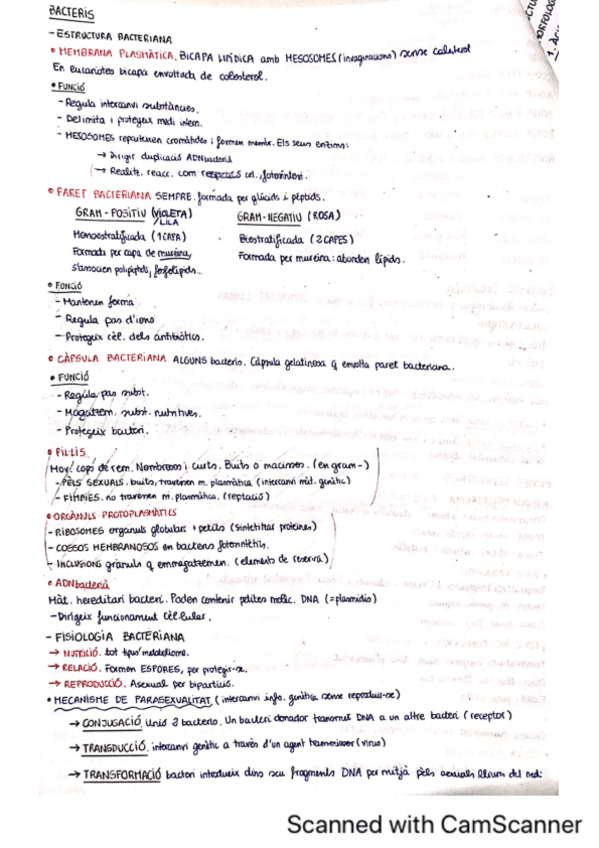 BACTERIS
- ESTRUCTURA BACTERIANA
• MEMBRANA PLASMÀTICA. BICAPA LIPÍDICA amb MESOSOMES (invaginacions) sense colesterol
En eucariotes bicapa envoltada de colesterol.
• FUNCIÓ
- Regula intercanvi substàncies.
- Delimita i protegeix medi intern.
- MESOSOMES reparteixen cromàtides i formen membr. Els seus enzims:
→ Dirigir duplicació ADNbacterià
→ Realitz. reacc. com respiració cel., fotosíntesi.
• PARET BACTERIANA SEMPRE. formada per glúcids i pèptids.
GRAM-POSITIU (VIOLETA)
LILA
GRAM-NEGATIU (ROSA)
Monoestratificada (1 CAPA)
Biestratificada (2 CAPES)
Formada per capa de mureina,
Formada per mureina: abunden lípids.
s'associen polipèptids, fosfolípids..
• FUNCIÓ
- Mantenen forma
- Regula pas d'ions
- Protegeix cèl. dels antibiòtics.
• CÀPSULA BACTERIANA ALGUNS bacteris. Càpsula gelatinosa q envolta paret bacteriana..
• FUNCIÓ
- Regula pas subst.
- Magatzem. subst. nutritives.
- Protegeix bacteri.
• PIL·LIS
Nombrosos i curts. Buits o macissos. (en gram-)
- PÈLS SEXUALS. buits, travessen m. plasmàtica (intercanvi màt. genètic)
- FÍMNIES. no travessen m. plasmàtica. (reptació)
• ORGÀNULS PROTOPLASMÀTICS
- RIBOSOMES orgànuls globulars + petits (sintetitzar proteïnes)
- COSSOS MEMBRANOSOS en bacteris fotosintètics.
- INCLUSIONS grànuls q emmagatzemen. (elements de reserva)
• ADNbacterià
Màt. hereditari bacteri. Poden contenir petites molèc. DNA (=plasmidis)
- Dirigeix funcionament cèl·lular.
- FISIOLOGIA BACTERIANA
→ NUTRICIÓ. tot tipus metabolisme.
→ RELACIÓ. Formen ESPORES, per protegir-se.
→ REPRODUCCIÓ. Asexual per bipartició.
• MECANISME DE PARASEXUALITAT (intercanvi info. genètica sense reproduir-se)
→ CONJUGACIÓ. Unió 2 bacteris. Un bacteri donador transmet DNA a un altre bacteri (receptor)
→ TRANSDUCCIÓ. intercanvi genètic a través d'un agent transmissor (virus)
→ TRANSFORMACIÓ bacteri introdueix dins seu fragments DNA per mitjà pèls sexuals lliures del medi.
Scanned with CamScanner